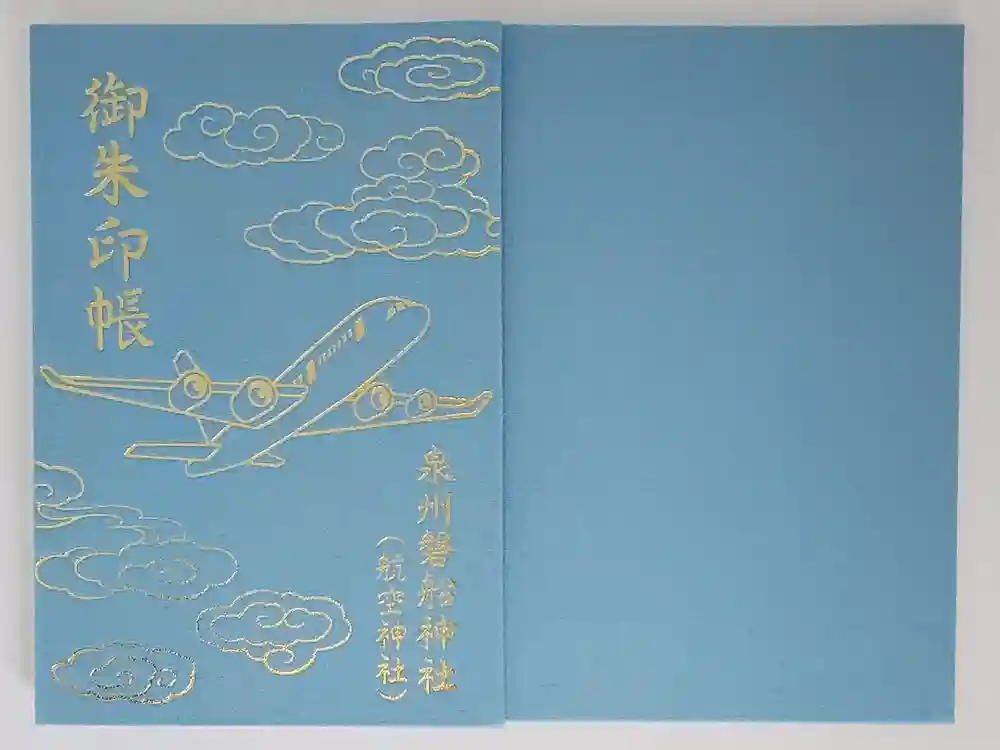 御朱印帳
泉州磐船神社
（航空神社）